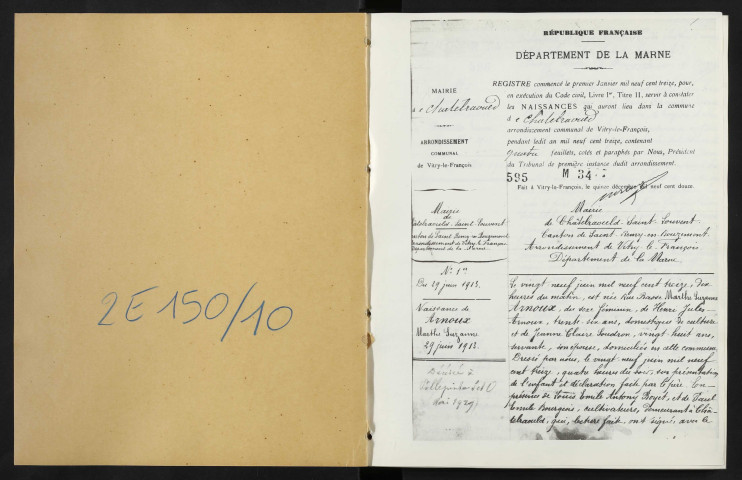 2E 150/10
RÉPUBLIQUE FRANÇAISE
DÉPARTEMENT DE LA MARNE
MAIRIE
de Chatelraould
ARRONDISSEMENT
COMMUNAL
de Vitry-le-François
REGISTRE commencé le premier Janvier mil neuf cent treize, pour,
en exécution du Code civil, Livre Ier, Titre II, servir à constater
les NAISSANCES qui auront lieu dans la commune
de Chatelraould
arrondissement communal de Vitry-le-François,
pendant ledit an mil neuf cent treize, contenant
quatre feuillets, cotés et paraphés par Nous, Président
du Tribunal de première instance dudit arrondissement.
595 M 34
Fait à Vitry-le-François, le quinze décembre mil neuf cent douze.
Mairie
de
Chatelraould-Saint-Louvent
Canton de Saint Remy en Bouzemont
Arrondissement de Vitry le François
Département de la Marne
Mairie
de Châtelraould-Saint-Louvent
Canton de Saint Remy-en-Bouzemont
Arrondissement de Vitry le François
Département de la Marne
N° 1er
Du 29 juin 1913.
Naissance de
Arnoux
Marthe Suzanne
29 juin 1913.
Décédée à
Villejuif
1929
Le vingt neuf juin mil neuf cent treize, dix
heures du matin, est née Rue Basse Marthe Suzanne
Arnoux, du sexe féminin, de Henri Jules
Arnoux, trente six ans, domestique de culture
et de Jeanne Claire, vingt huit ans,
servante, son épouse, domiciliés en cette commune
Dressé par nous, le vingt neuf juin mil neuf
cent treize, quatre heures du soir, sur présentation
de l'enfant et déclaration faite par le père. En
présence de Louis Emile Antony Boyet, et de Paul
Emile Bourgeois, cultivateurs, demeurant à Châ-
telraould, qui, lecture faite, ont signé avec le